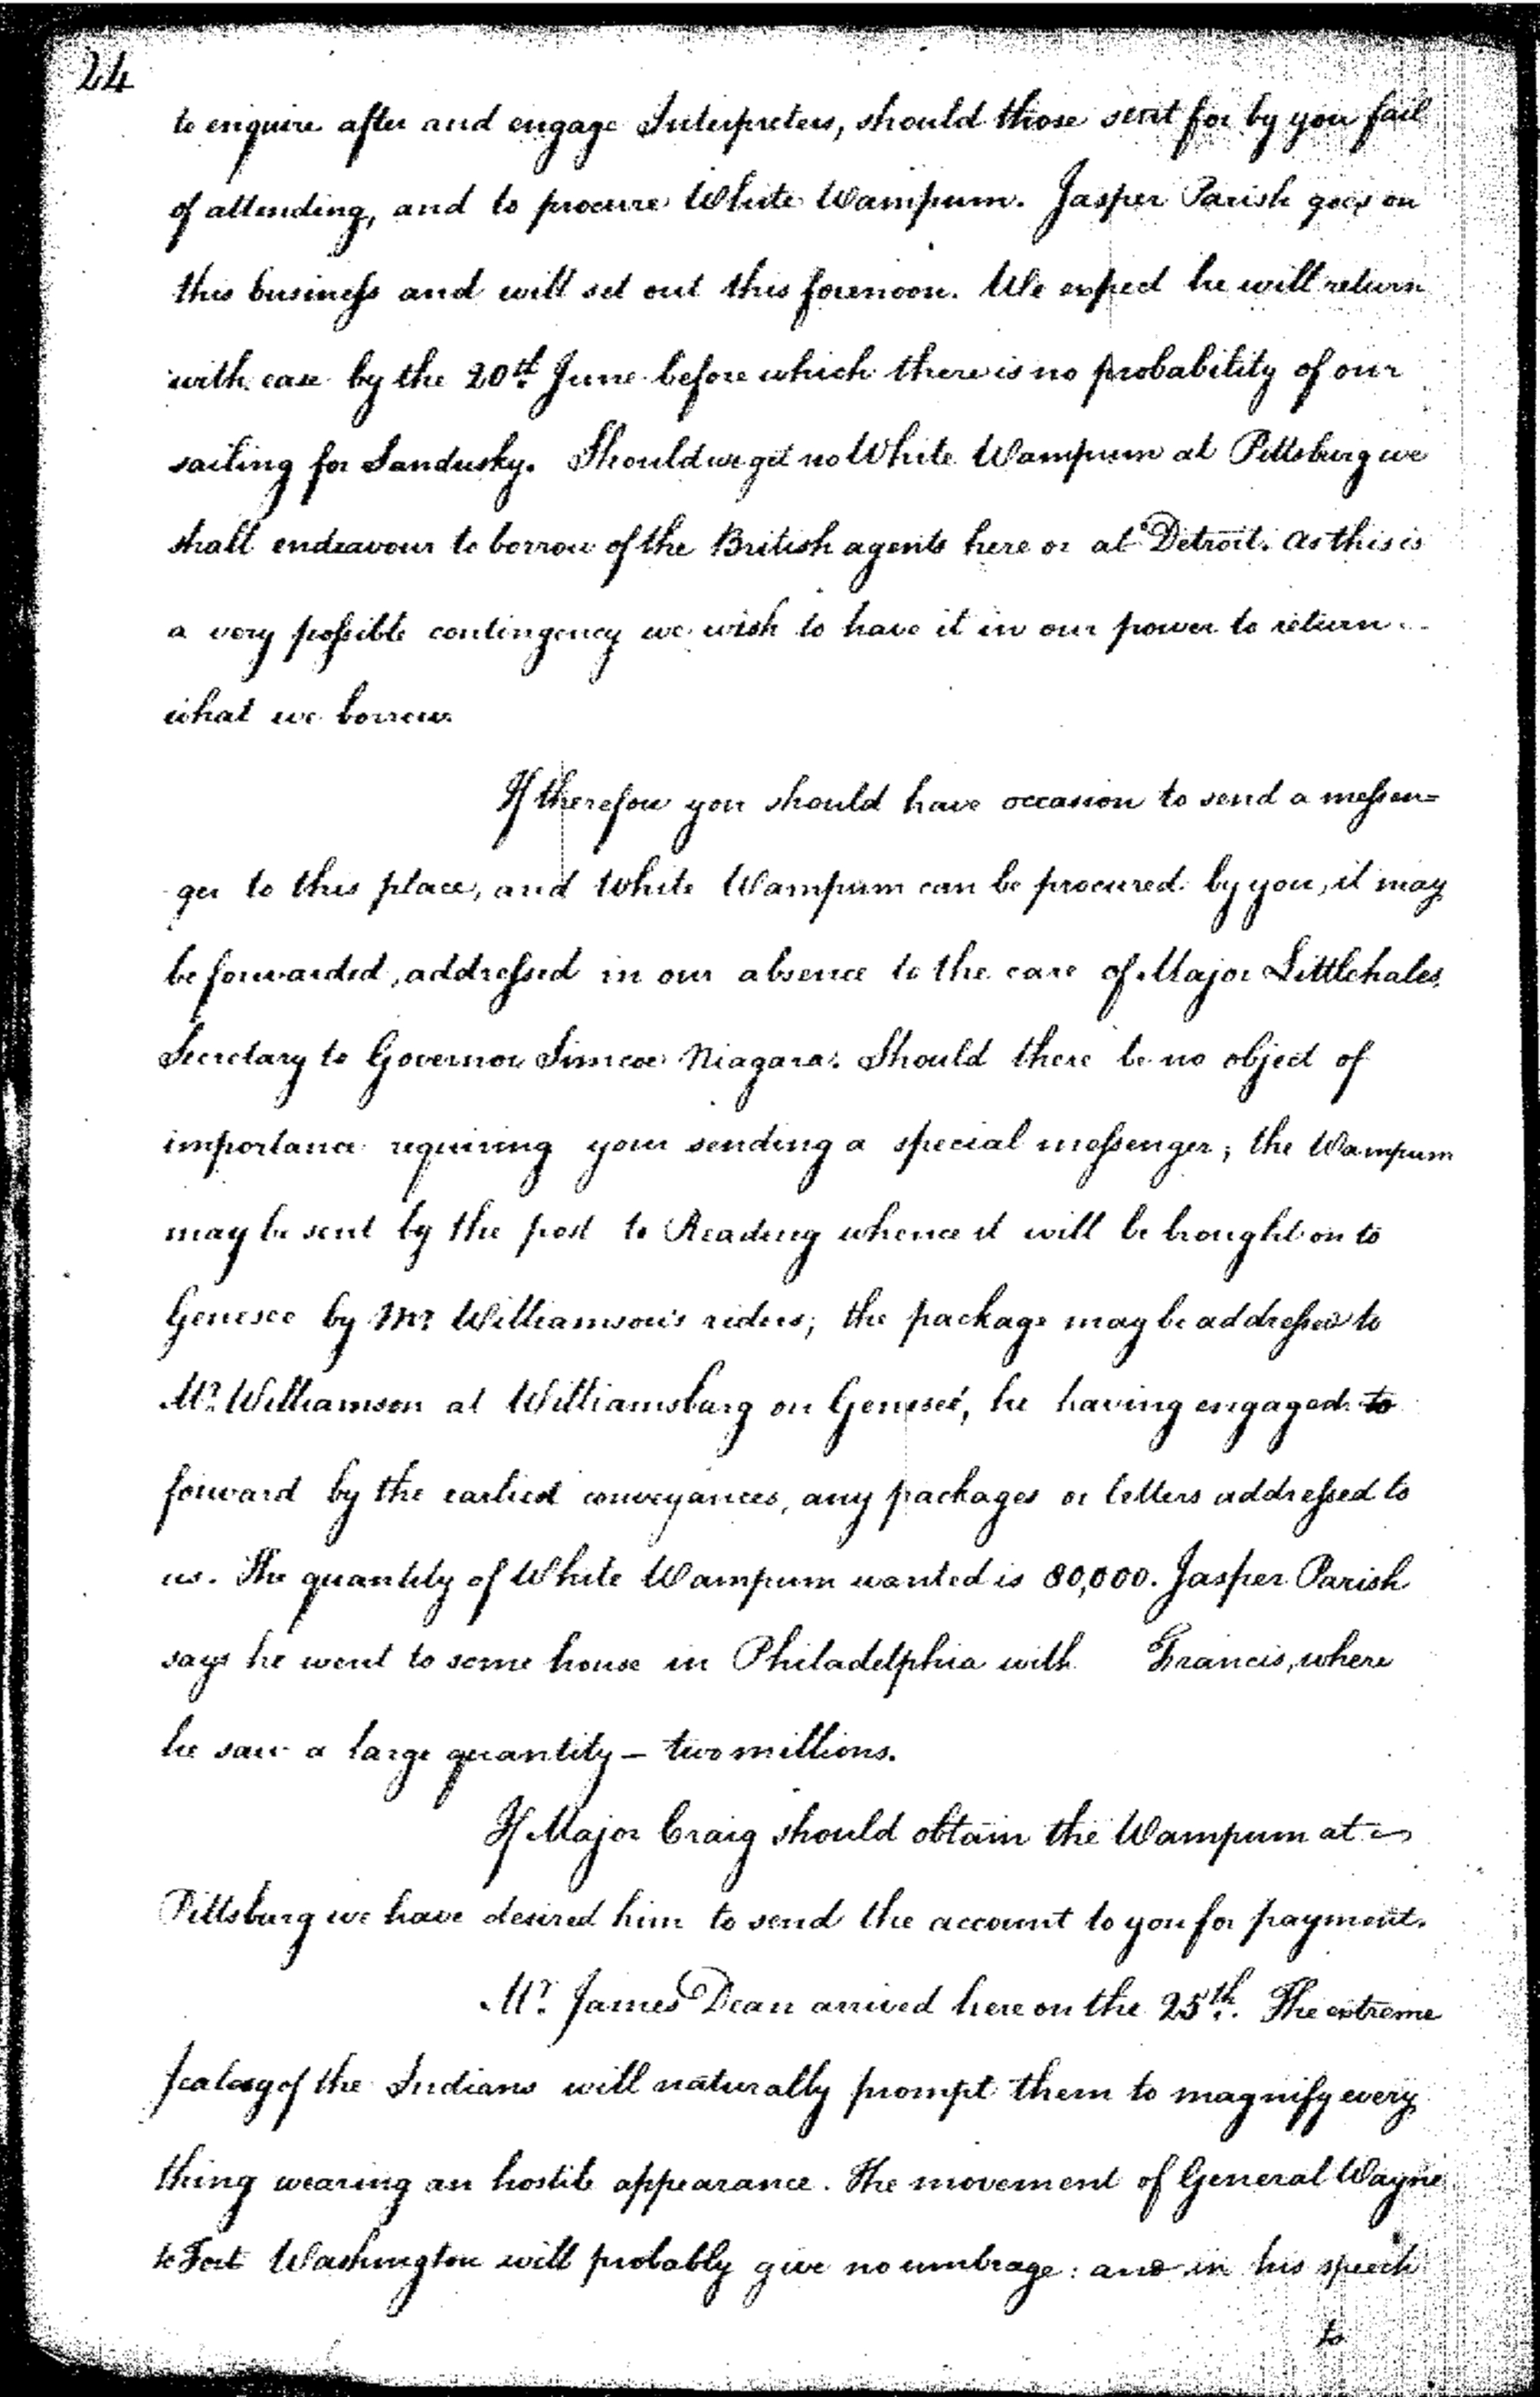 24
to enquire after and engage Interpreters, should those sent for by you fail
of attending, and to procure White Wampum. Jasper Parish goes on
this business and will set out this forenoon. We expect he will return
with ease by the 20th June before which there is no probability of our
sailing for Sandusky. Should we get no White Wampum at Pittsburg we
shall endeavour to borrow of the British agents here or at Detroit. As this is
a very possible contingency we wish to have it in our power to return
what we borrow.
If therefore you should have occasion to send a messen=
ger to this place, and White Wampum can be procured by you, it may
be forwarded, addressed in our absence to the care of Major Littlehales
Secretary to Governor Simcoe Niagara. Should there be no object of
importance requiring your sending a special messenger; the Wampum
may be sent by the post to Reading whence it will be brought on to
Genesee by Mr. Williamson's riders; the package may be addressed to
Mr. Williamson at Williamsburg on Genesee, he having engaged to
forward by the earliest conveyances, any packages or letters addressed to
us. The quantity of White Wampum wanted is 80,000. Jasper Parish
says he went to some house in Philadelphia with Francis, where
he saw a large quantity – two millions.
If Major Craig should obtain the Wampum at
Pittsburg we have desired him to send the account to you for payment.
Mr. James Dean arrived here on the 25th. The extreme
jealosy of the Indians will naturally prompt them to magnify every
thing wearing an hostile appearance. The movement of General Wayne
to Fort Washington will probably give no umbrage: and in his speech
to